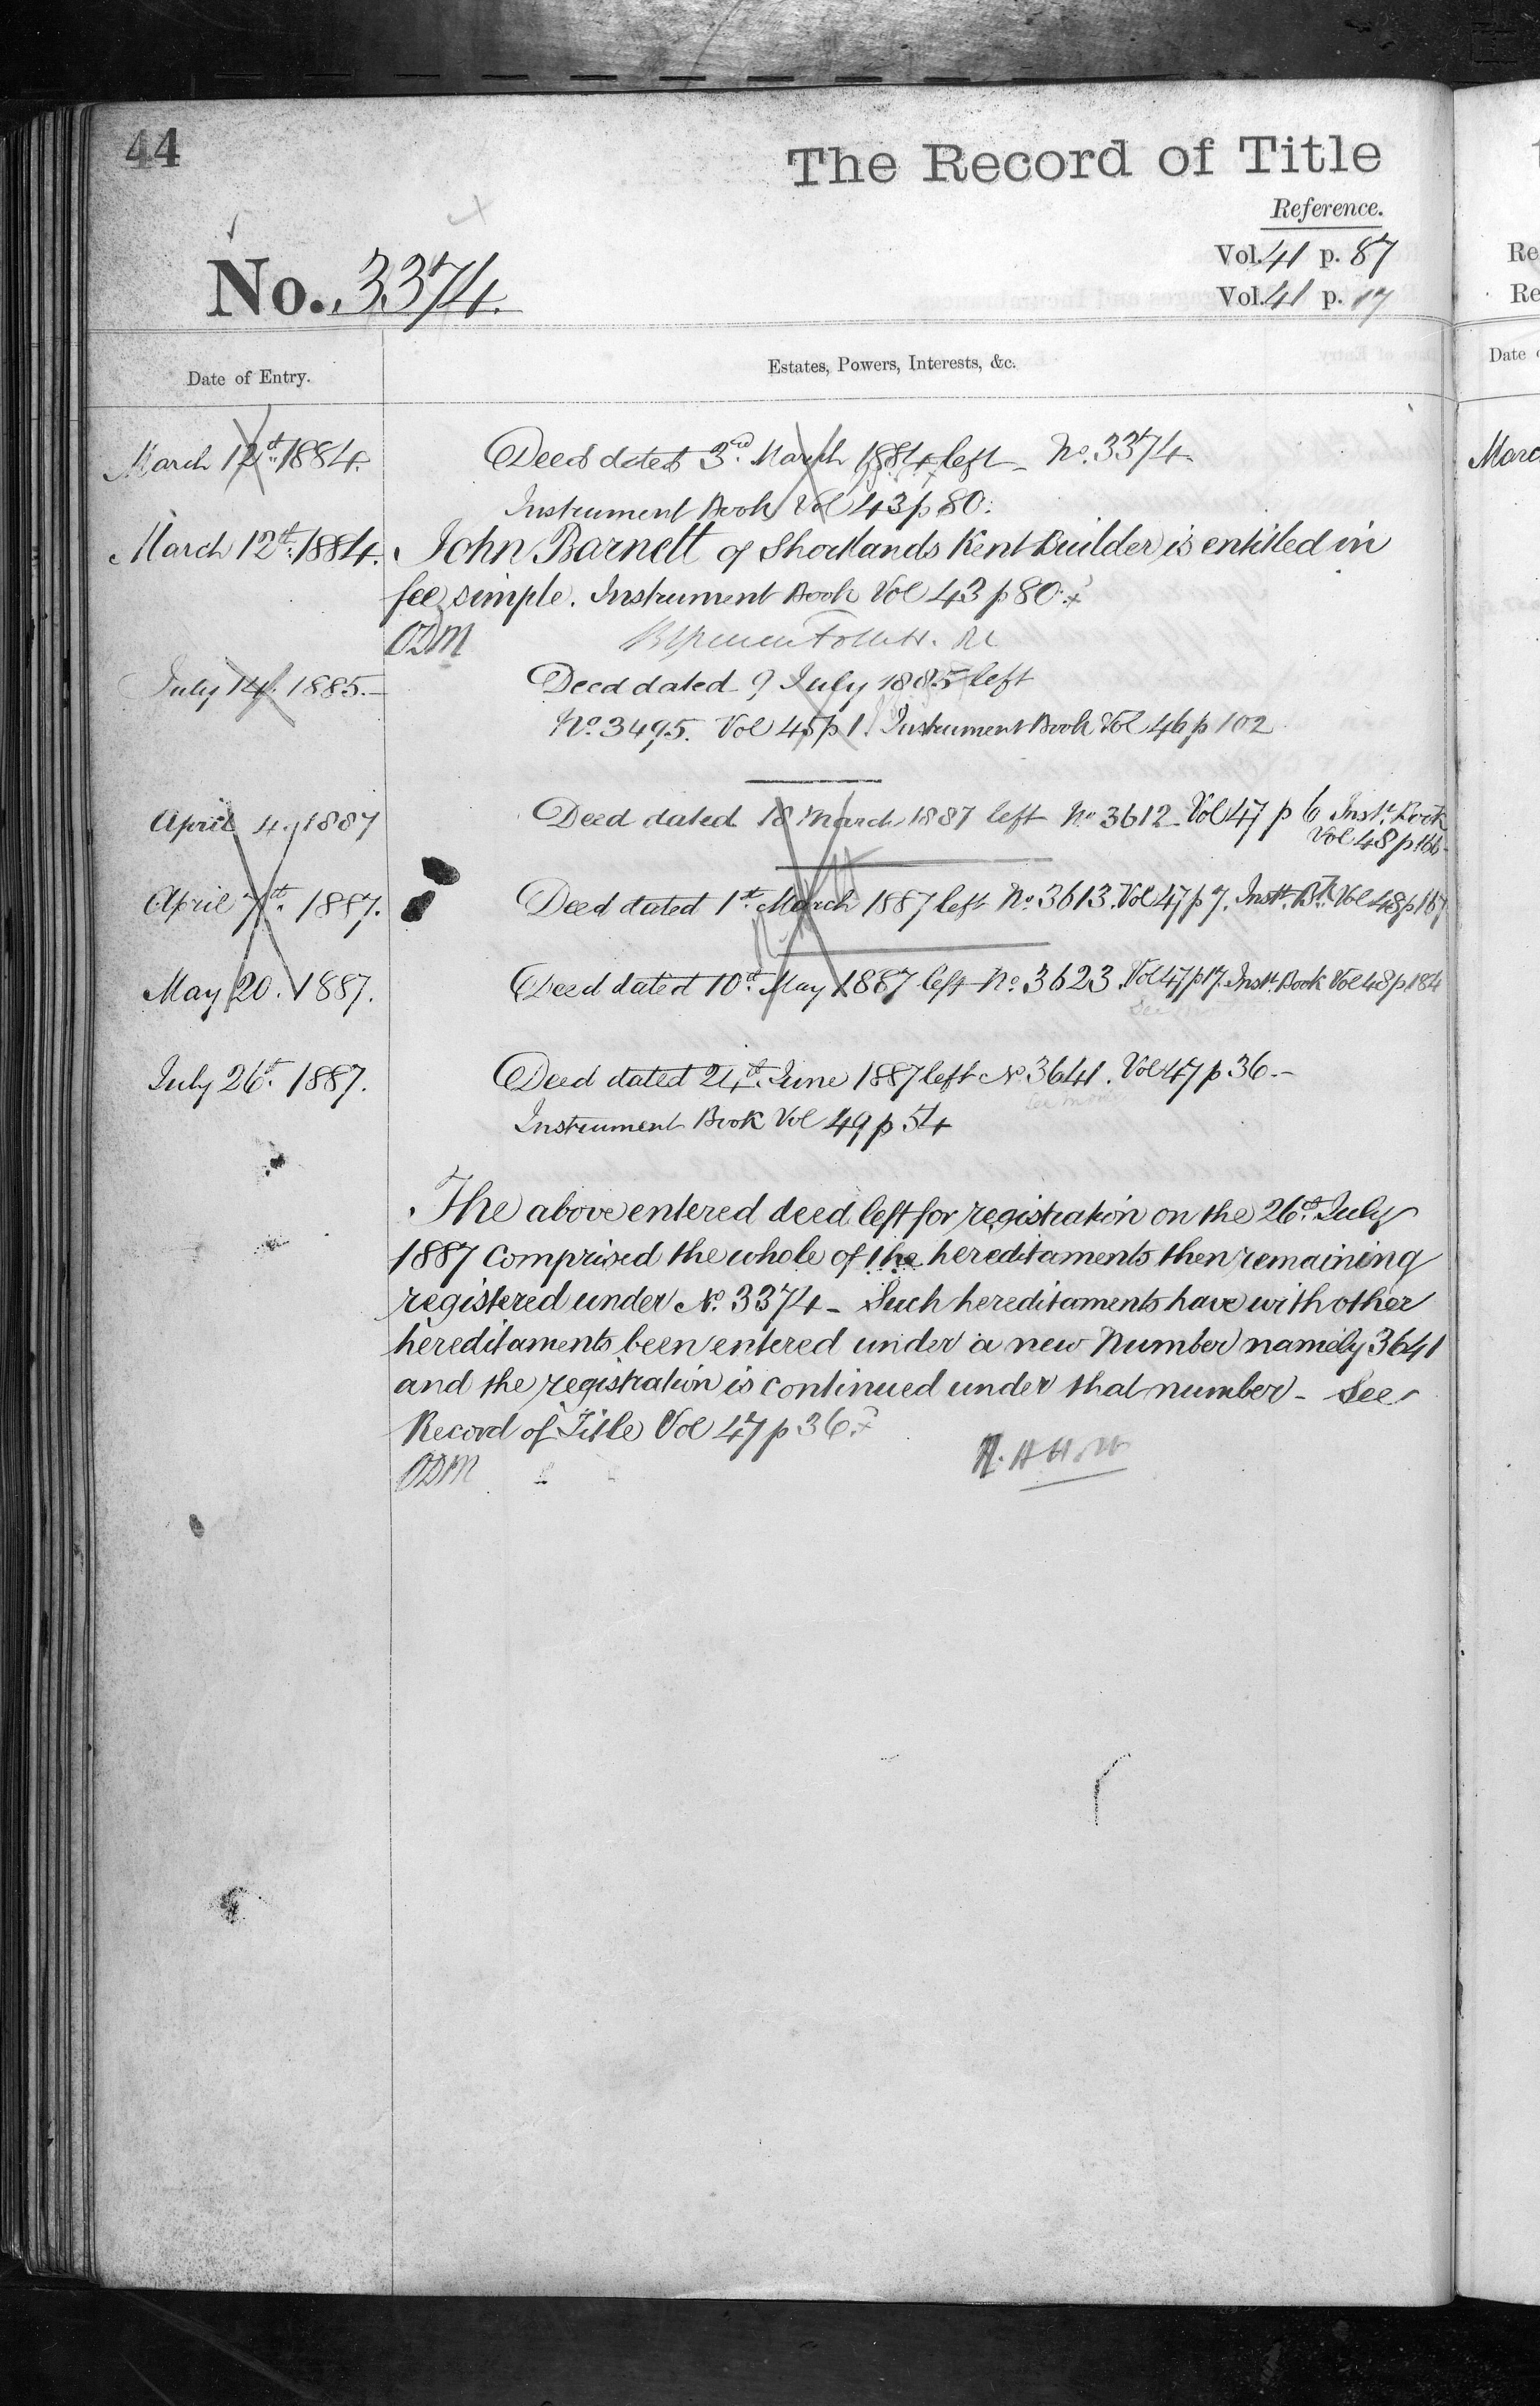 44
The Record of Title
Reference.
Vol. 41 p. 87
No. 3374.
Vol. 41 p. 17
Date of Entry.
Estates, Powers, Interests, &c.
March 12th 1884. Deed dated 3rd March 1884 left No. 3374
Instrument Book Vol 43 p 80.
March 12th 1884. John Barnett of Shortlands Kent Builder is entitled in
fee simple. Instrument Book Vol 43 p 80.
ODM
July 14. 1885. Deed dated 9 July 1885 left
No. 3495. Vol 45 p 1. Instrument Book Vol 46 p 102
April 4. 1887 Deed dated 18 March 1887 left No 3612 Vol 47 p 6 Inst. Book
Vol 48 p 166
April 7th 1887. Deed dated 1st March 1887 left No. 3613. Vol 47 p 7. Inst. Bk. Vol 48 p 167
May 20. 1887. Deed dated 10th May 1887 left No. 3623. Vol 47 p 17. Inst. Book Vol 48 p 184
July 26th 1887. Deed dated 24th June 1887 left No. 3641. Vol 47 p 36.
Instrument Book Vol 49 p 54
The above entered deed left for registration on the 26th July
1887 comprised the whole of the hereditaments then remaining
registered under No. 3374 - Such hereditaments have with other
hereditaments been entered under a new Number namely 3641
and the registration is continued under that number - See
Record of Title Vol 47 p 36.
ODM
Re
Re
Date
Marc